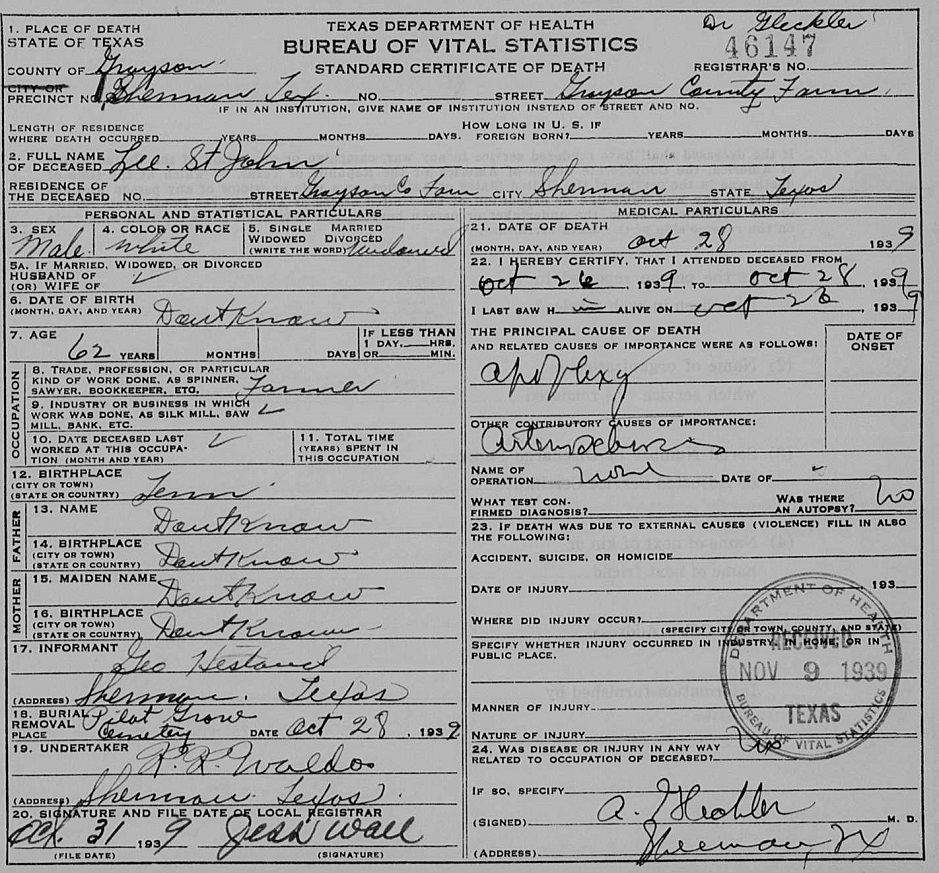 Dr Gleckler
TEXAS DEPARTMENT OF HEALTH
BUREAU OF VITAL STATISTICS
STANDARD CERTIFICATE OF DEATH
46147
REGISTRAR'S NO.
1. PLACE OF DEATH
STATE OF TEXAS
COUNTY OF Grayson
CITY OR
PRECINCT NO. Sherman Tex. NO. STREET Grayson County Farm
IF IN AN INSTITUTION, GIVE NAME OF INSTITUTION INSTEAD OF STREET AND NO.
LENGTH OF RESIDENCE
WHERE DEATH OCCURRED YEARS MONTHS DAYS.
HOW LONG IN U. S. IF
FOREIGN BORN? YEARS MONTHS DAYS
2. FULL NAME
OF DECEASED Lee. St John
RESIDENCE OF
THE DECEASED NO. STREET Grayson Co Farm CITY Sherman STATE Texas
PERSONAL AND STATISTICAL PARTICULARS
3. SEX
Male
4. COLOR OR RACE
white
5. SINGLE MARRIED
WIDOWED DIVORCED
(WRITE THE WORD) Widowed
5A. IF MARRIED, WIDOWED, OR DIVORCED
HUSBAND OF
(OR) WIFE OF
6. DATE OF BIRTH
(MONTH, DAY, AND YEAR) Dont Know
7. AGE
62 YEARS MONTHS DAYS
IF LESS THAN
1 DAY, HRS.
OR MIN.
OCCUPATION
8. TRADE, PROFESSION, OR PARTICULAR
KIND OF WORK DONE, AS SPINNER,
SAWYER, BOOKKEEPER, ETC. Farmer
9. INDUSTRY OR BUSINESS IN WHICH
WORK WAS DONE, AS SILK MILL, SAW
MILL, BANK, ETC.
10. DATE DECEASED LAST
WORKED AT THIS OCCUPA-
TION (MONTH AND YEAR)
11. TOTAL TIME
(YEARS) SPENT IN
THIS OCCUPATION
12. BIRTHPLACE
(CITY OR TOWN)
(STATE OR COUNTRY) Tenn
FATHER
13. NAME Dont Know
14. BIRTHPLACE
(CITY OR TOWN)
(STATE OR COUNTRY) Dont Know
MOTHER
15. MAIDEN NAME Dont Know
16. BIRTHPLACE
(CITY OR TOWN)
(STATE OR COUNTRY) Dont Know
17. INFORMANT
Geo Hestand
(ADDRESS) Sherman. Texas
18. BURIAL
REMOVAL
PLACE Pilot Grove
Cemetery DATE Oct 28, 1939
19. UNDERTAKER
R. R. Waldo
(ADDRESS) Sherman. Texas.
20. SIGNATURE AND FILE DATE OF LOCAL REGISTRAR
Oct. 31 1939 Jess Wall
(FILE DATE) (SIGNATURE)
MEDICAL PARTICULARS
21. DATE OF DEATH
(MONTH, DAY, AND YEAR) Oct 28 1939
22. I HEREBY CERTIFY, THAT I ATTENDED DECEASED FROM
Oct 26, 1939, TO Oct 28, 1939
I LAST SAW H im ALIVE ON Oct 26, 1939
THE PRINCIPAL CAUSE OF DEATH
AND RELATED CAUSES OF IMPORTANCE WERE AS FOLLOWS:
DATE OF
ONSET
Apoplexy
OTHER CONTRIBUTORY CAUSES OF IMPORTANCE:
NAME OF
OPERATION none DATE OF
WHAT TEST CON-
FIRMED DIAGNOSIS?
WAS THERE
AN AUTOPSY? No
23. IF DEATH WAS DUE TO EXTERNAL CAUSES (VIOLENCE) FILL IN ALSO
THE FOLLOWING:
ACCIDENT, SUICIDE, OR HOMICIDE
DATE OF INJURY 193
WHERE DID INJURY OCCUR?
(SPECIFY CITY OR TOWN, COUNTY, AND STATE)
SPECIFY WHETHER INJURY OCCURRED IN INDUSTRY, IN HOME, OR IN
PUBLIC PLACE.
MANNER OF INJURY
NATURE OF INJURY
24. WAS DISEASE OR INJURY IN ANY WAY
RELATED TO OCCUPATION OF DECEASED?
IF SO, SPECIFY
(SIGNED) A. Gleckler M. D.
(ADDRESS) Sherman, Tx
DEPARTMENT OF HEALTH
RECEIVED
NOV 9 1939
TEXAS
BUREAU OF VITAL STATISTICS